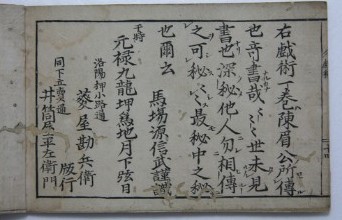 右戯術一巻陳眉公所傳
也奇書哉〻〻世未見
書也深秘他人勿相傳
之可秘〻〻最秘中之秘
也爾云
馬場源信武謹識
于時
元禄九龍集 地月下弦日
洛陽押小路通
葵屋勘兵衛
同下立賣通
版行
井筒屋六平左衛門